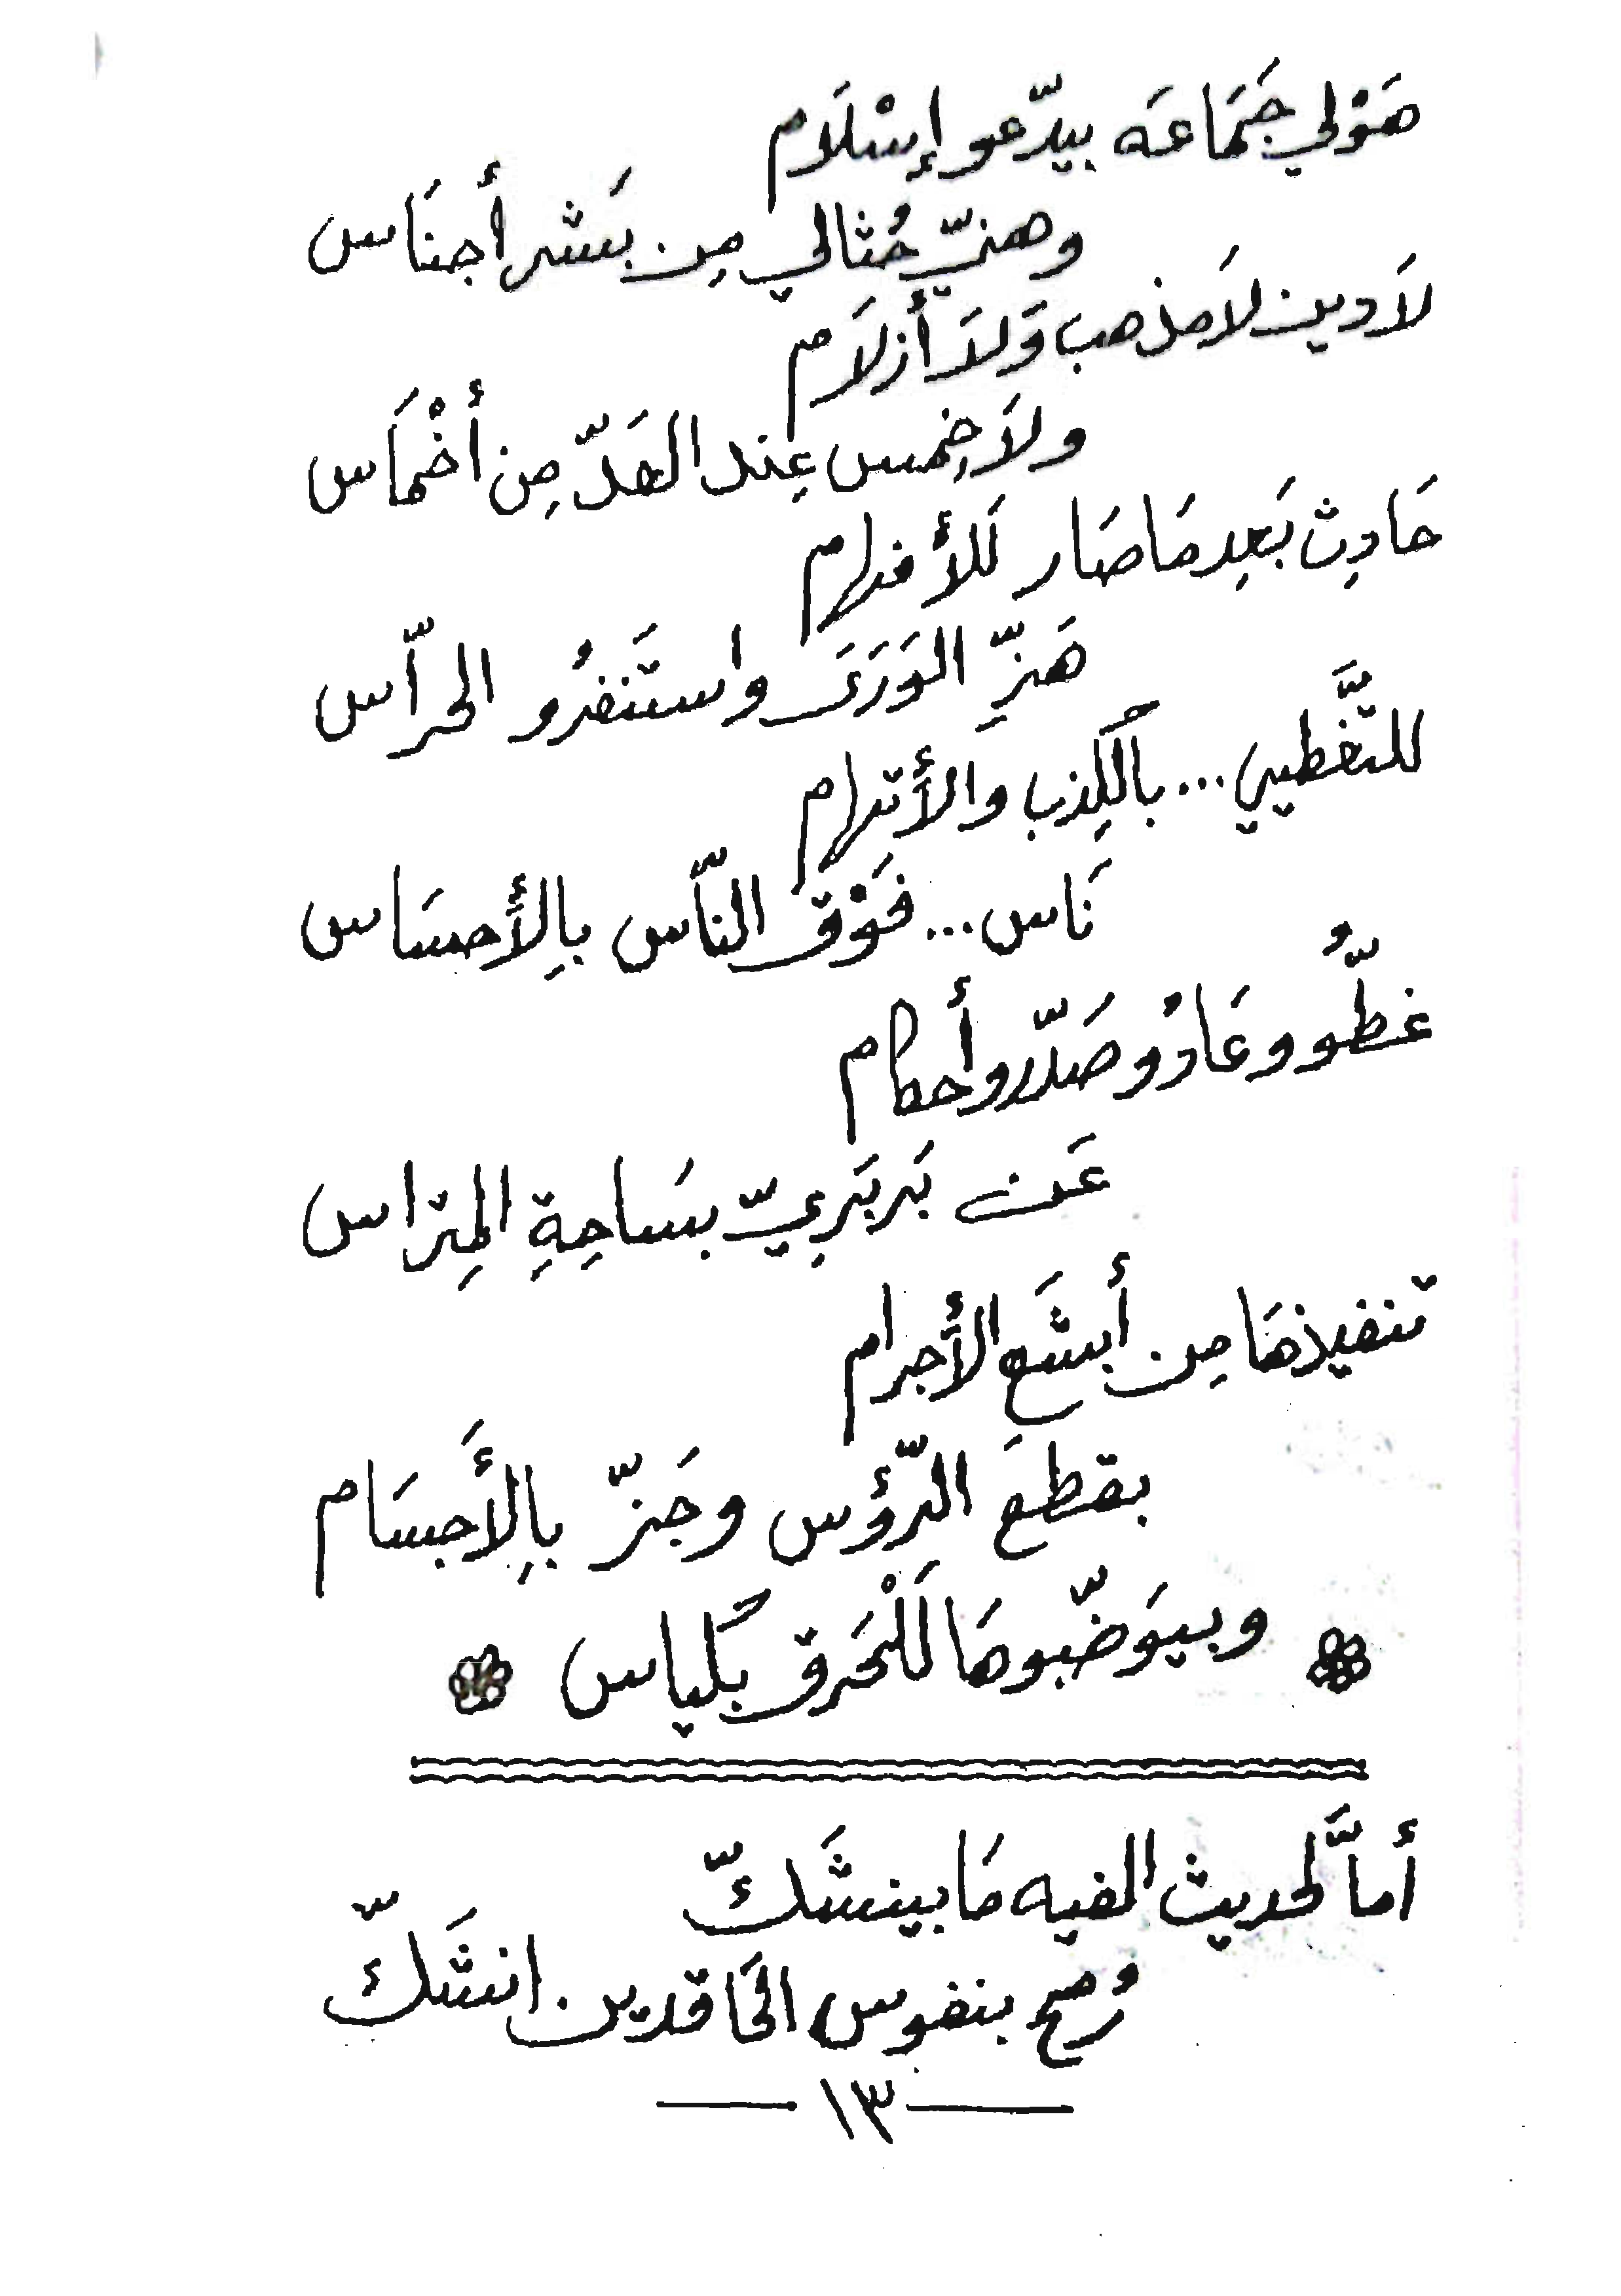 هَوْلي جَمَاعَه بيدّعو إسْلَام
وهنيّ حُثالي مِن بَشر أجنَاس
لاَ دين لاَ مذهب وَلاَ أزلاَم
ولاَ خِمس عِند العَدّ مِن أخْمَاس
حَادِث بَعِد مَا صَار لَلأفهام
هَزِّ الوَرَىَ واستَنفرُو الحرّاس
للتَّغطيي... بالكِذب والأتهام
نَاس... فَوْق النّاس بالِأحسَاس
غطُّو وعَادُو صَدّرو أحكام
عَن بَربَرِيّ بسَاحِةِ المِتراس
تنفيذهَا مِن أبشَع الأجرام
بقطعَ الرّؤس وجَزّ بالِأَجسَام
وبيوَضّبوهَا لَلْحَرق بكياس
أمَّا لحديث الفيه مَا بينشَكّ
رُمح بنفوس الحَاقدين انشَكّ
١٣